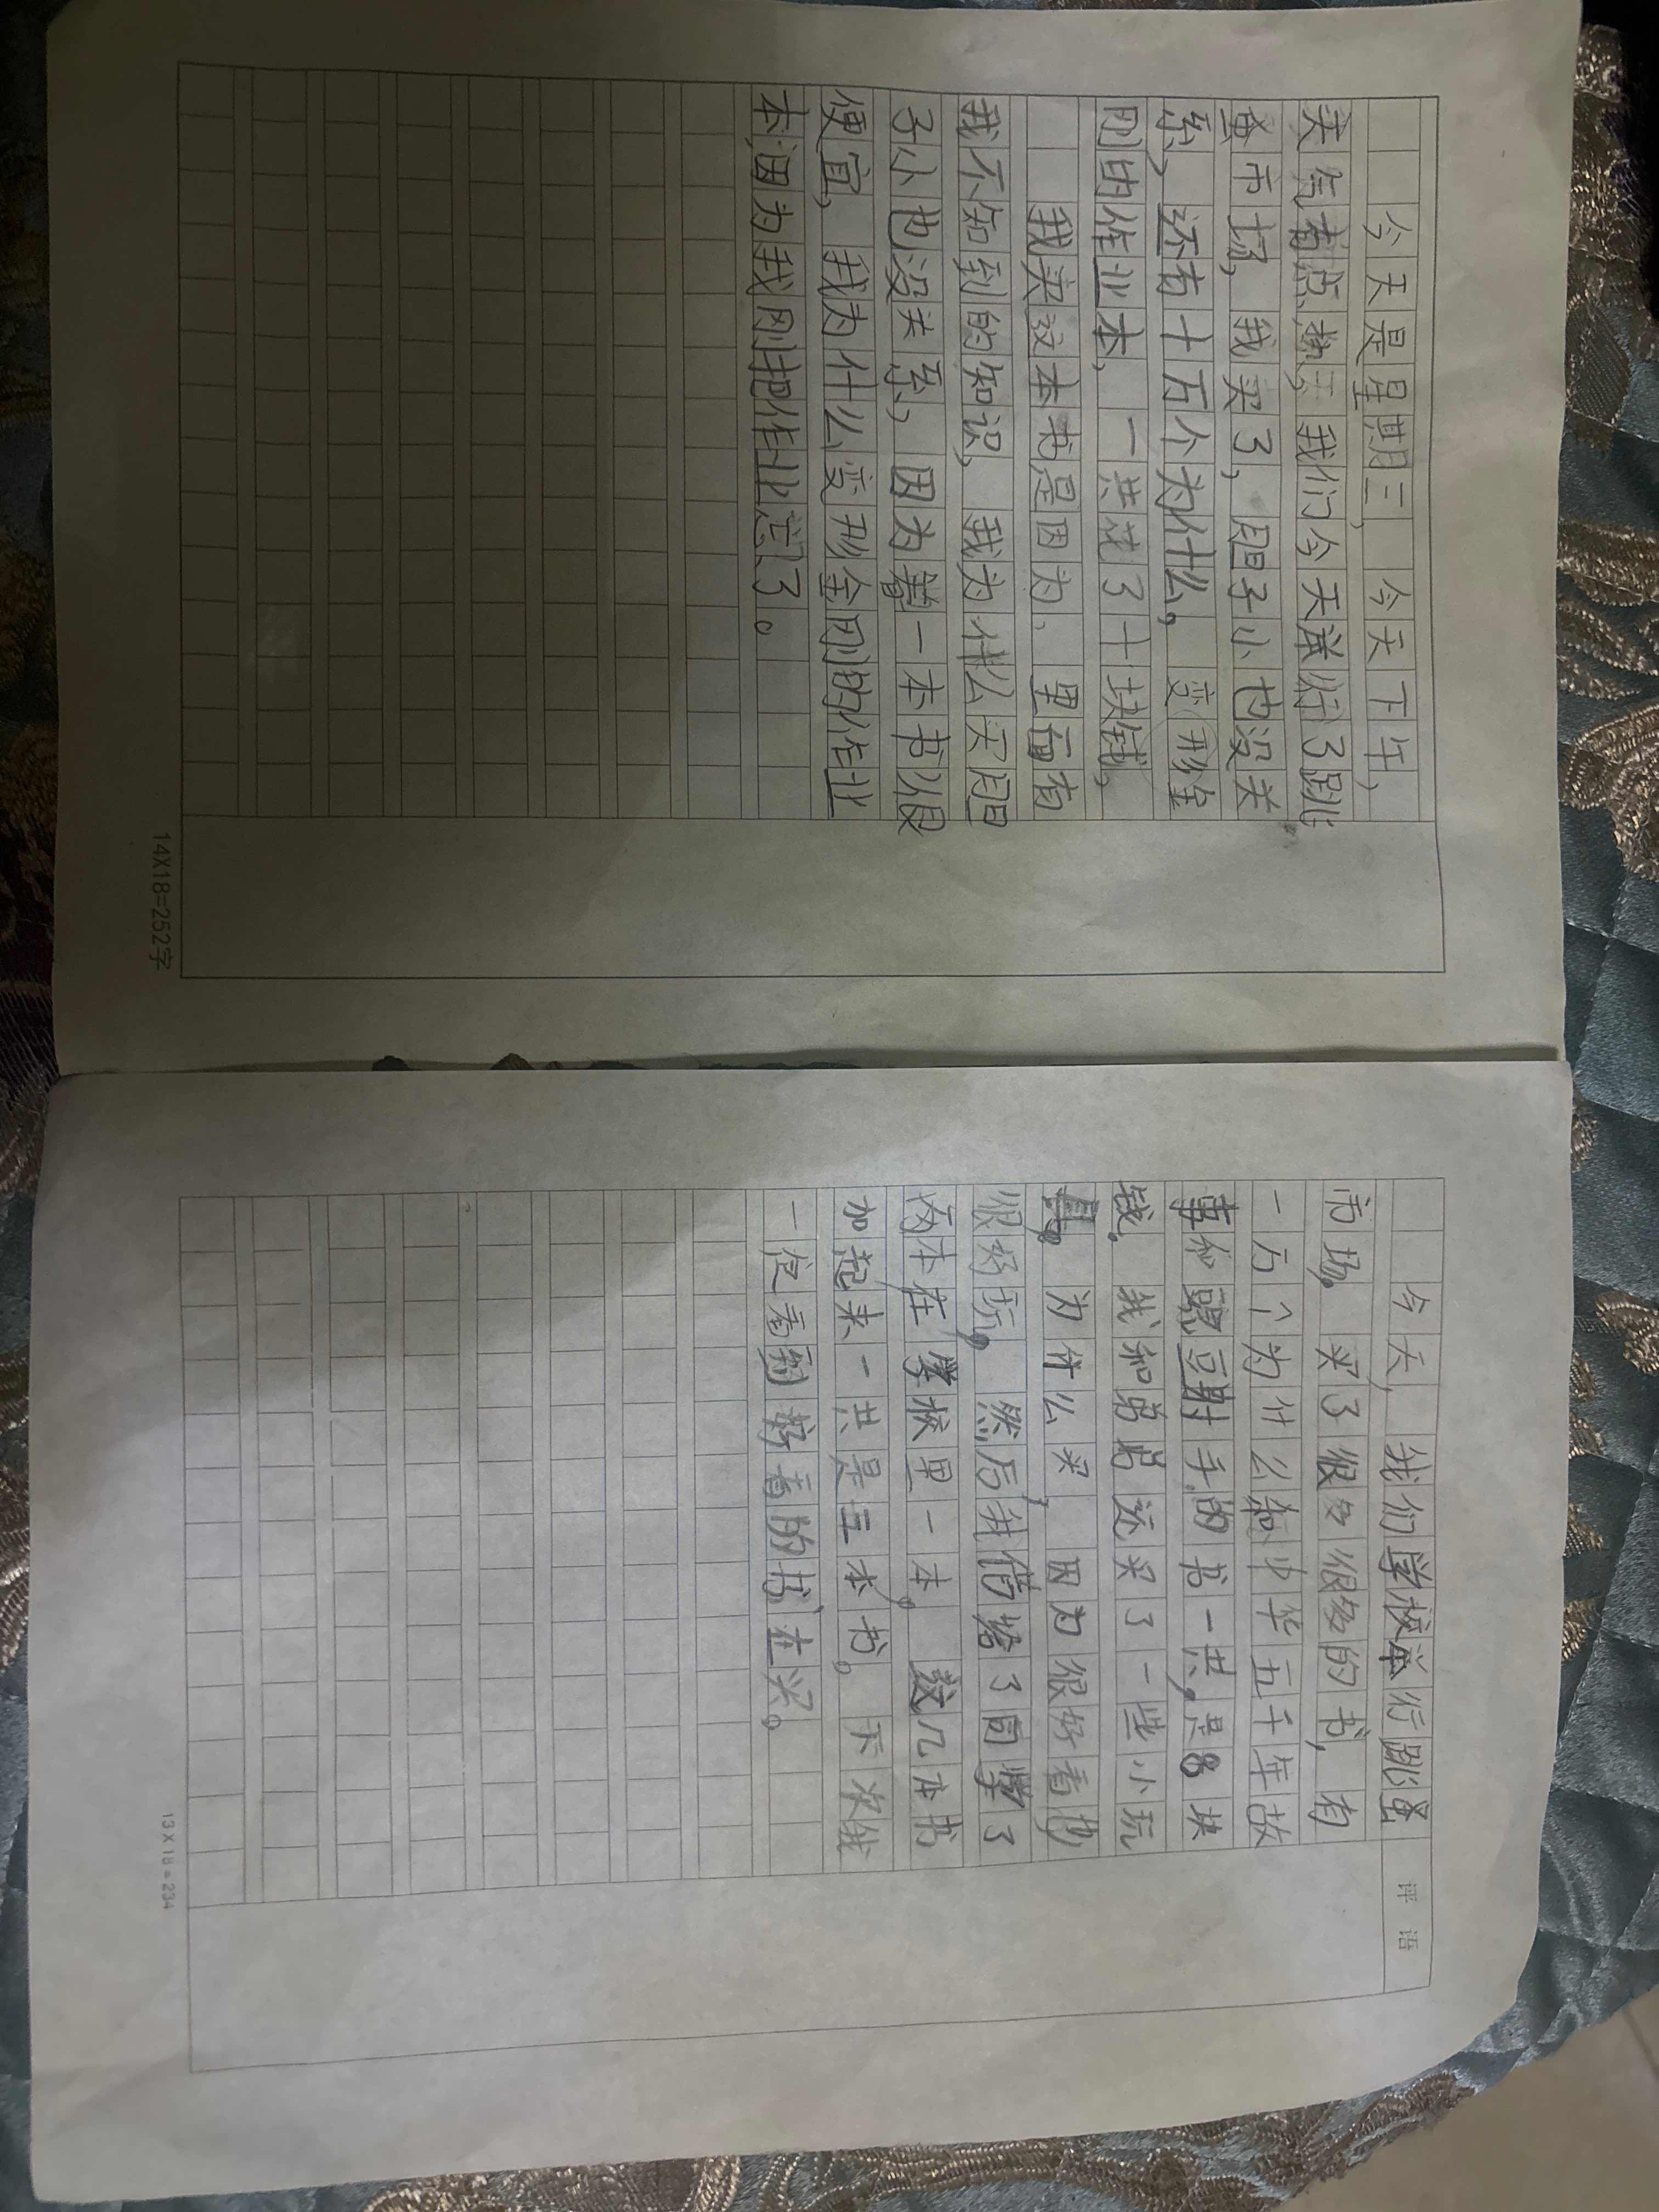 今天是星期三，今天下午，
天气有点热，我们今天举行了跳
蚤市场，我买了，胆子小也没关
系，还有十万个为什么，变形金
刚的作业本，一共花了十块钱，
我买这本书是因为、里面有
我不知到的知识，我为什么买胆
子小也没关系，因为着一本书很
便宜，我为什么变形金刚的作业
本，因为我刚把作业忘了。
14X18=252字
今天，我们学校举行跳蚤
市场，买了很多很多的书，有
一万个为什么和中华五千年故
事和豌豆射手的书一共，是8块
钱。我和弟弟还买了一些小玩
具。为什么买，因为很好看也
很好玩，然后我借给了同学了
两本在学校里一本，这几本书
加起来一共是三本书。下次我
一定看到新着的书在买。
评语
13X18=234